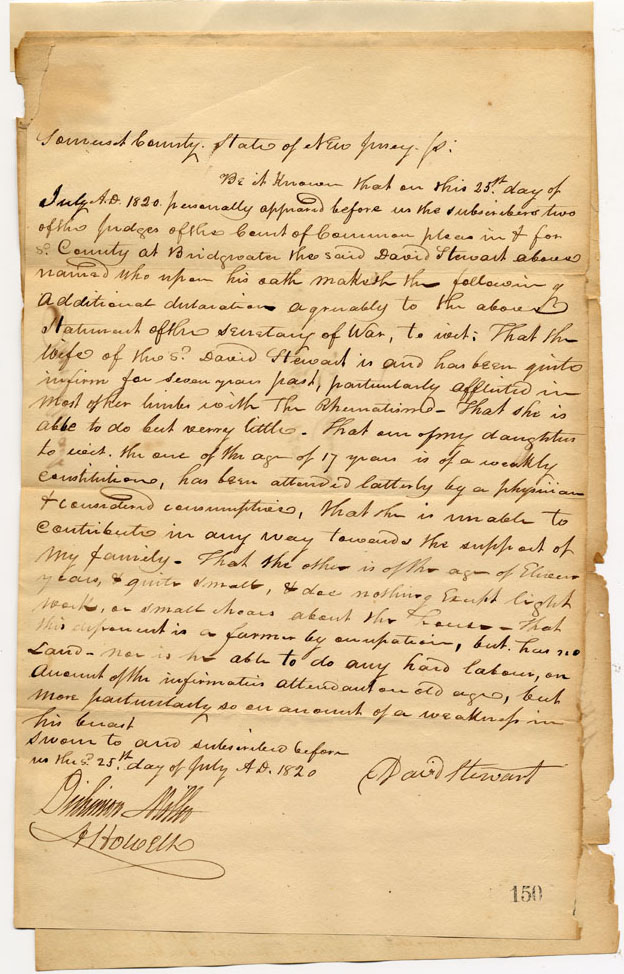 Somerset County. State of New Jersey. Ss:
Be it Known that on this 25.th day of
July A.D. 1820. personally appeared before us the subscribers two
of the Judges of the Court of Common pleas in & for
sd. County at Bridgwater the said David Stewart above
named who upon his oath maketh the following
additional declaration agreeably to the above
Statement of the secretary of War, to wit: That the
wife of the sd. David Stewart is and has been quite
infirm for seven years past, particularly afflicted in
most of her limbs with The Rheumatism - That she is
able to do but verry little - That one of my daughters
to wit. the one of the age of 17 years is of a weakly
constitution, has been attended latterly by a physician
& considered consumptive, that she is unable to
contribute in any way towards the support of
my family - That the other is of the age of Eleven
years, & quite small, & doe nothing Except light
work, or small choars about the house - That
this deponent is a farmer by occupation, but has no
Land - nor is he able to do any hard labour, on
amount of the infirmities attendant on old age, but
more particularly so on amount of a weakness in
his breast
Sworn to and subscribed before
us this sd. 25.th day of July A.D. 1820
David Stewart
Dickinson Miller
A Howell
150